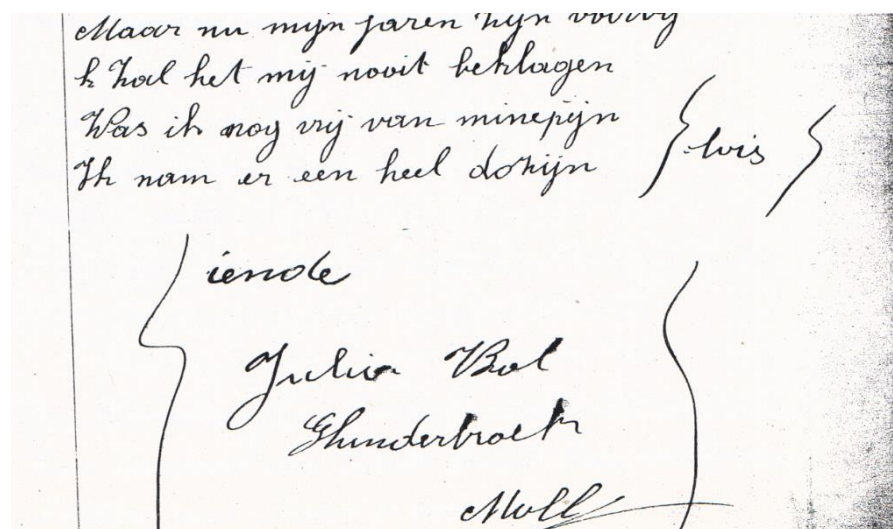 Maar nu mijn jaren zijn voorbij
k Zal het mij nooit beklagen
Was ik nog vrij van minepijn
Ik nam er een heel dozijn } bis }
iende
Julia Bol
Ghinderbroek
Moll